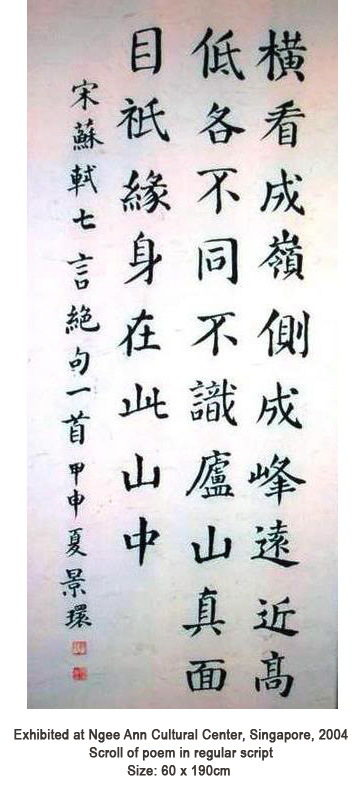 橫看成嶺側成峰遠近高
低各不同不識廬山真面
目衹緣身在此山中
宋蘇軾七言絕句一首甲申夏景環
Exhibited at Ngee Ann Cultural Center, Singapore, 2004
Scroll of poem in regular script
Size: 60 x 190cm